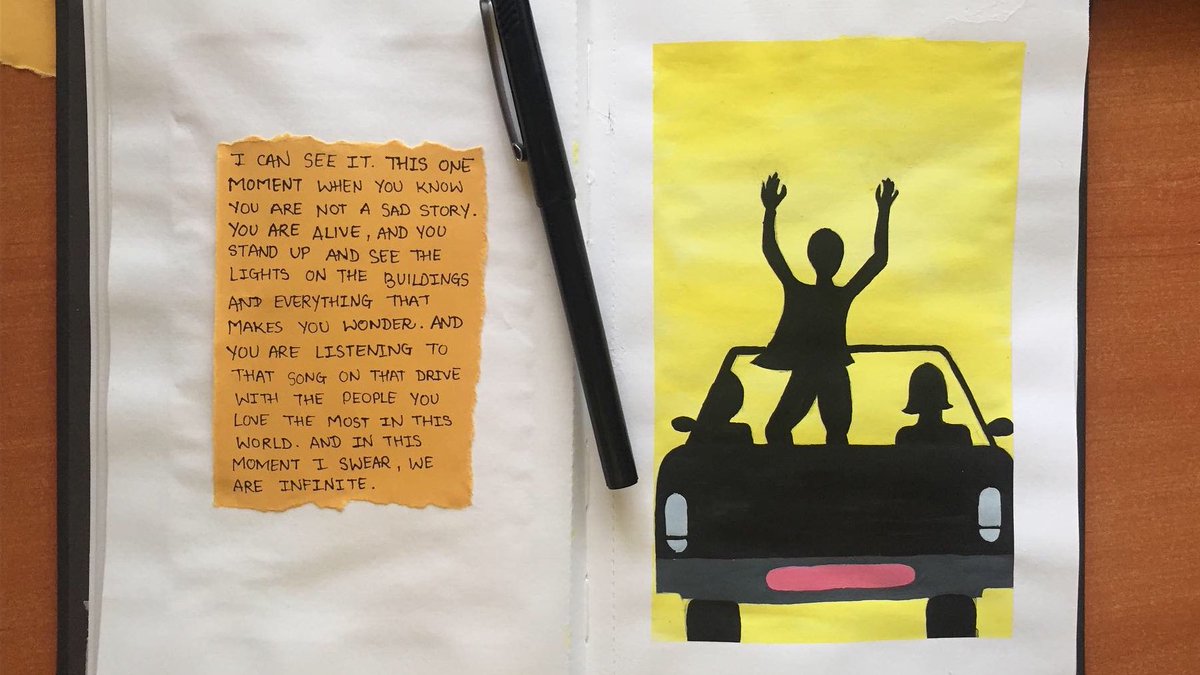 I CAN SEE IT. THIS ONE
MOMENT WHEN YOU KNOW
YOU ARE NOT A SAD STORY.
YOU ARE ALIVE, AND YOU
STAND UP AND SEE THE
LIGHTS ON THE BUILDINGS
AND EVERYTHING THAT
MAKES YOU WONDER. AND
YOU ARE LISTENING TO
THAT SONG ON THAT DRIVE
WITH THE PEOPLE YOU
LOVE THE MOST IN THIS
WORLD. AND IN THIS
MOMENT I SWEAR, WE
ARE INFINITE.